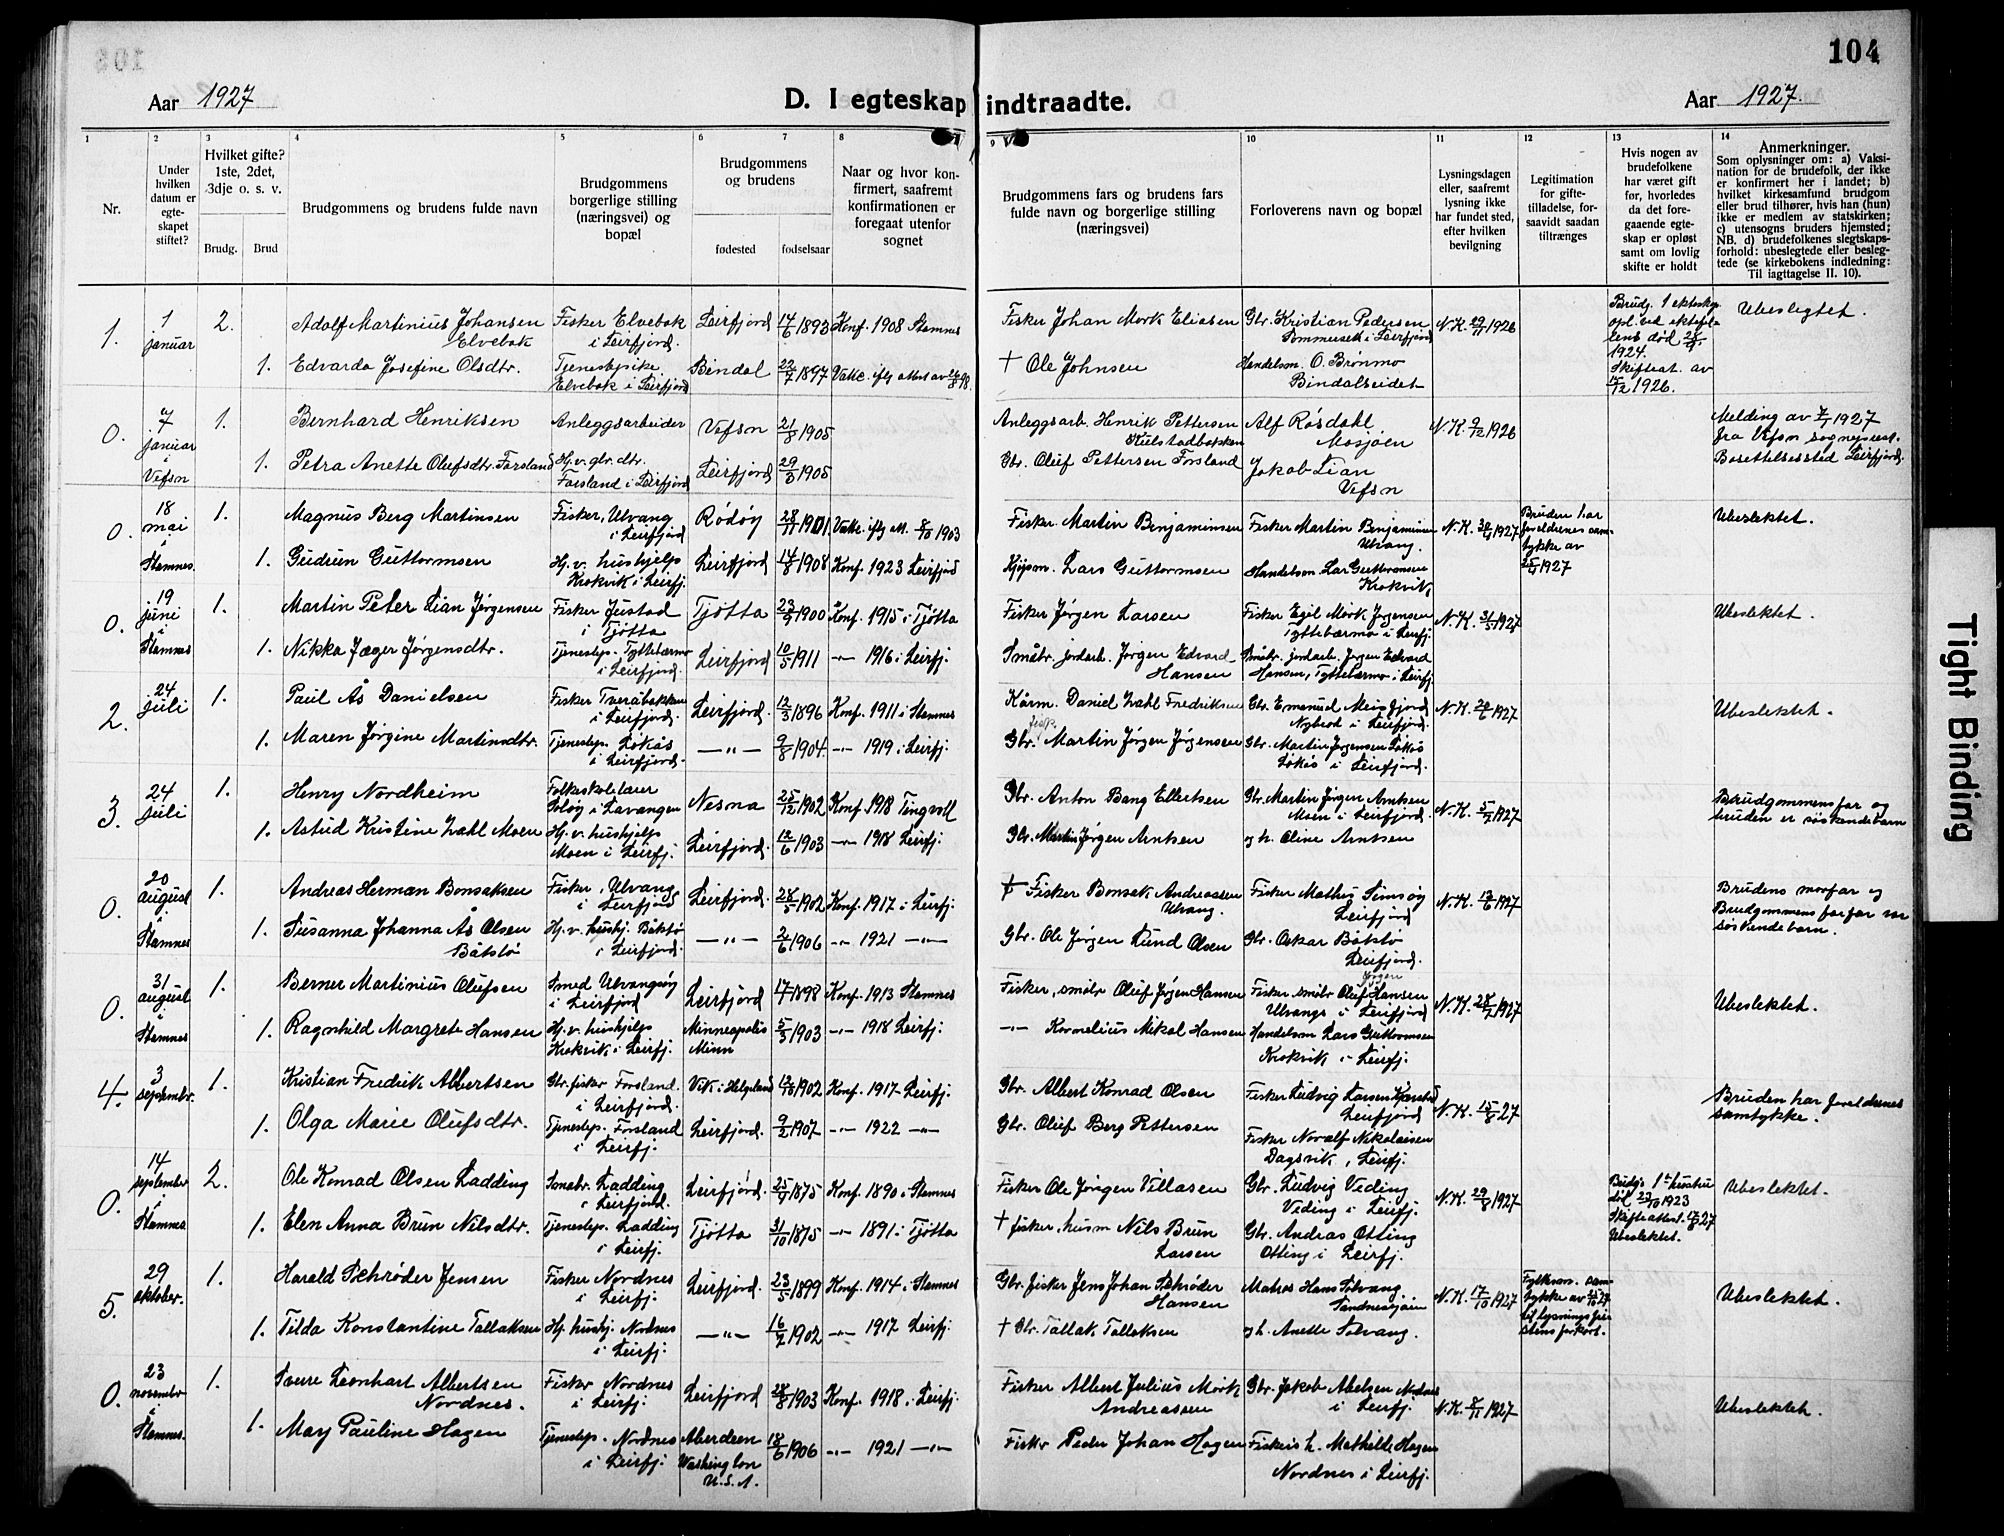 104
Aar 1927
D. I egteskap indtraadte.
Aar 1927.
1 2 3 4 5 6 7 8 9 10 11 12 13 14
Nr.
Under hvilken datum er egteskapet stiftet?
Hvilket gifte? 1ste, 2det, 3dje o. s. v.
Brudg. Brud
Brudgommens og brudens fulde navn
Brudgommens borgerlige stilling (næringsvei) og bopæl
Brudgommens og brudens
fødested fødselsaar
Naar og hvor konfirmert, saafremt konfirmationen er foregaat utenfor sognet
Brudgommens fars og brudens fars fulde navn og borgerlige stilling (næringsvei)
Forloverens navn og bopæl
Lysningsdagen eller, saafremt lysning ikke har fundet sted, efter hvilken bevilgning
Legitimation for giftetilladelse, forsaavidt saadan tiltrænges
Hvis nogen av brudefolkene har været gift før, hvorledes da det foregaaende egteskap er opløst samt om lovlig skifte er holdt
Anmerkninger.
Som oplysninger om: a) Vaksination for de brudefolk, der ikke er konfirmert her i landet; b) hvilket kirkesamfund brudgom eller brud tilhører, hvis han (hun) ikke er medlem av statskirken; c) utensogns bruders hjemsted; NB. d) brudefolkenes slegtskapsforhold: ubeslegtede eller beslegtede (se kirkebokens indledning: Til iagttagelse II. 10).
1. 1 januar 2. Adolf Martinius Johansen Elvebak Fisker Elvebak i Leirfjord. Leirfjord 14/6 1893 Konf. 1908 Stamnes Fisker Johan Mork Eliasen Gbr. Kristian Pedersen Sommersett i Leirfjord N.K. 29/11 1926 1924. Skifteat. av 1926. Ubeslegtet.
1. Edvarda Josefine Olsdtr. Elvebak i Leirfjord Bindal 22/7 1897 † Ole Johnsen Handelsm. O. Brønmo Bindalseidet
0. 7 januar i Vefsn 1. Bernhard Henriksen Anleggsarbeider Vefsn 21/8 1905 Anleggsarb. Henrik Pettersen Alf Røsdahl Mosjøen N.K. 9/12 1926 Melding av 7/1 1927 fra Vefsn sogneprest. Bosettelsessted Leirfjord.
1. Petra Anette Olufsdtr. Forsland Hj. v. gbr. dtr. Forsland i Leirfjord Leirfjord 29/3 1905 Gbr. Oluf Pettersen Forsland Jakob Lian Vefsn
0. 18 mai i Stamnes. 1. Magnus Berg Martinsen Fisker, Ulvang i Leirfjord Rödöy 28/11 1901 Fisker Martin Benjaminsen Fisker Martin Benjaminsen Ulvang. N.K. 30/4 1927 Bruden har foreldrenes samtykke av 1927 Ubeslektet.
1. Gudrun Guttormsen Hj. v. hushjelp Krokvik i Leirfj. Leirfjord 14/8 1908 Konf. 1923 Leirfjord Lars Guttormsen Handelsm. Lars Guttormsen Krokvik
0. 19 juni i Stamnes 1. Martin Peter Lian Jørgensen Fisker Justad i Tjötta Tjötta 23/3 1900 Konf. 1915 i Tjötta Fisker Jørgen Larsen Fisker Egil Mork Jørgensen Tyttebærmo i Leirfj. N.K. 31/5 1927 Ubeslektet.
1. Nikka Jæger Jørgensdtr. Tjenestep. Tyttebærmo i Leirfjord. Leirfjord 10/5 1911 -"- 1916 i Leirfj. Småbr. jordarb. Jørgen Edvard Hansen Småbr. jordarb. Jørgen Edvard Hansen, Tyttebærmo i Leirfj
2. 24 juli 1. Paul Ås Danielsen Fisker Tveråbakken i Leirfjord. Leirfjord 12/3 1896 Konf. 1911 i Stamnes Kårm. Daniel Zahl Fredriksen Gbr. Emanuel Meisfjord Nybrod i Leirfjord. N.K. 20/6 1927 Ubeslektet.
1. Maren Jørgine Martinsdtr. Tjenestep. Løkås i Leirfjord. -"- 9/8 1904 -"- 1919 i Leirfj. Gbr. Martin Jørgen Jørgensen Gbr. Martin Jørgensen Løkås Løkås i Leirfjord.
3. 24 juli 1. Henry Nordheim Folkeskolelærer i Lavangen Nesna 25/12 1902 Konf. 1918 Tingvoll Gbr. Anton Bang Ellertsen Gbr. Martin Jørgen Arntsen Moen i Leirfjord. N.K. 5/7 1927 Brudgommens far og bruden er søskendebarn
1. Astrid Kristine Zahl Moen Hj. v. hushjelp Moen i Leirfj. Leirfjord. 12/6 1903 -"- 1918 Leirfj. Gbr. Martin Jørgen Arntsen og h. Oline Arntsen
0. 20 august i Stamnes 1. Andreas Herman Bonsaksen Fisker, Ulvang i Leirfjord Leirfjord. 28/5 1902 Konf. 1917 i Leirfj. † Fisker Bonsak Andreassen Ulvang. Fisker Mathis Simsøy Leirfjord N.K. 12/6 1927 Brudens morfar og Brudgommens farfar var søskendebarn.
1. Susanna Johanna Ås Olsen Båtstø Hj. v. hushj. Båtstø i Leirfjord -"- 2/6 1906 -"- 1921 -"- Gbr. Ole Jørgen Lund Olsen Gbr. Oskar Båtstø Leirfjord.
0. 31 august i Stamnes 1. Berner Martinius Olufsen Smed Ulvangsøy i Leirfjord Leirfjord 17/7 1898 Konf. 1913 Stamnes Fisker, småbr Oluf Jørgen Hansen Fisker, småbr Oluf Jørgen Hansen Ulvangs i Leirfjord N.K. 28/7 1927 Ubeslektet.
1. Ragnhild Margrete Hansen Hj. v. hushjelp Krokvik i Leirfj. Minneapolis Minn 5/3 1903 -"- 1918 Leirfj. -"- Kornelius Mikal Hansen Handelsm Lars Guttormsen Krokvik i Leirfj.
4. 3 septembr. 1. Kristian Fredrik Albertsen Gbr. fisker Forsland i Leirfjord. Vik i Helgeland 12/10 1902 Konf. 1917 Leirfj. Gbr. Albert Konrad Olsen Fisker Ludvig Larsen Leirfjord N.K. 15/8 27 Bruden har foreldrenes samtykke.
1. Olga Marie Olufsdtr. Tjenestep. Forsland i Leirfj. Leirfjord. 9/2 1907 -"- 1922 -"- Gbr. Oluf Berg Pettersen Fisker Noralf Nikolaisen Dagsvik, Leirfj.
0. 14 september i Stamnes 2. Ole Konrad Olsen Ladding Ladding i Leirfjord. Leirfjord. 25/9 1875 Konf. 1890 i Stamnes Fisker Ole Jørgen Villasen Gbr. Ludvig Veding Veding i Leirfj. N.K. 29/8 1927 Brudg's 1ste hustru död 23/10 1923 Skifteattest. Ubeslektet. Ubeslektet.
1. Elen Anna Brun Nilsdtr. Tjenestep. Ladding i Leirfj. Tjötta 31/10 1875 -"- 1891 i Tjötta † fisker, husm Nils Brun Larsen Gbr. Andreas Otting Otting i Leirfj.
5. 29 oktober. 1. Harald Schrøder Jensen Fisker Nordnes i Leirfj. Leirfjord. 23/5 1899 Konf. 1914 i Stamnes Gbr. fisker Jens Johan Schrøder Hansen Matros Hans Solvang Sandnessjøen N.K. 17/10 1927 Fylkesm. samtykke av Ubeslektet.
1. Tilda Konstantine Tallaksen Hj. hushj. Nordnes i Leirfj. -"- 16/7 1902 -"- 1917 Leirfj. † Gbr. Tallak Tallaksen og h. Anette Solvang.
0. 23 novembr i Stamnes. 1. Sverre Leonhart Albertsen Nordnes. Fisker Nordnes i Leirfj. Leirfjord 28/8 1903 Konf. 1918 i Leirfj. Fisker Albert Julius Mörk Andreassen Gbr. Jakob Abelsen Nordnes i Leirfj. N.K. 5/11 1927 Ubeslektet.
1. May Pauline Hagen Tjenestep. Nordnes i Leirfj. Aberdeen Washington U.S.A. 18/6 1906 -"- 1921 -"- Fisker Peder Johan Hagen Fisker's h. Mathilde Hagen Nordnes i Leirfj.
Tight Binding